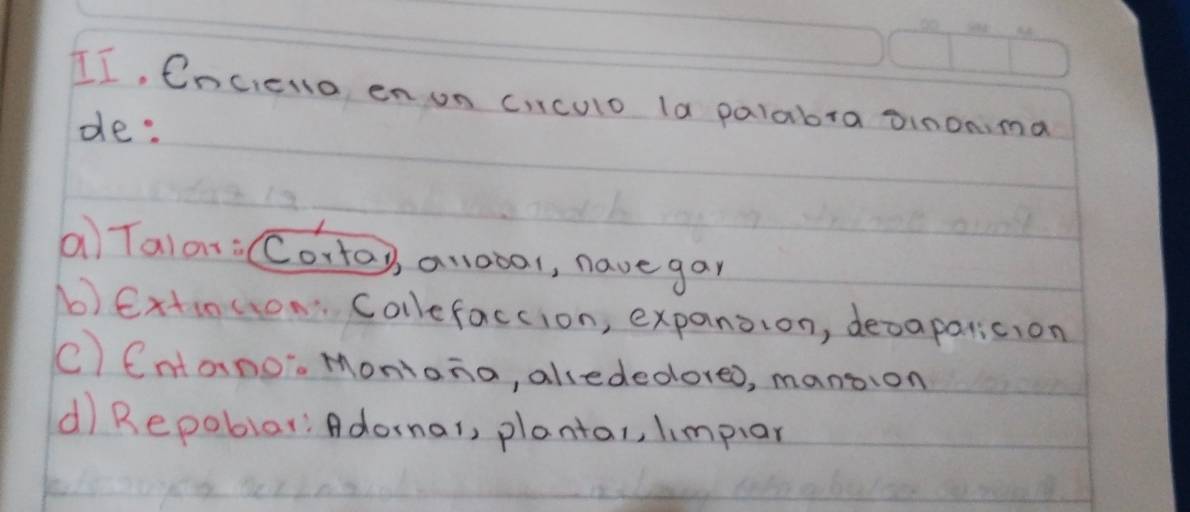 II. Encierra en un circulo la palabra sinonima
de:
a) Talar: Cortar, arrasar, navegar
b) Extincion: Calefaccion, expansion, desaparicion
c) Entorno: Montaña, alrededores, mansion
d) Repoblar: Adornar, plantar, limpiar